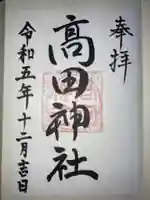 奉拝
高田神社
令和五年十二月吉日